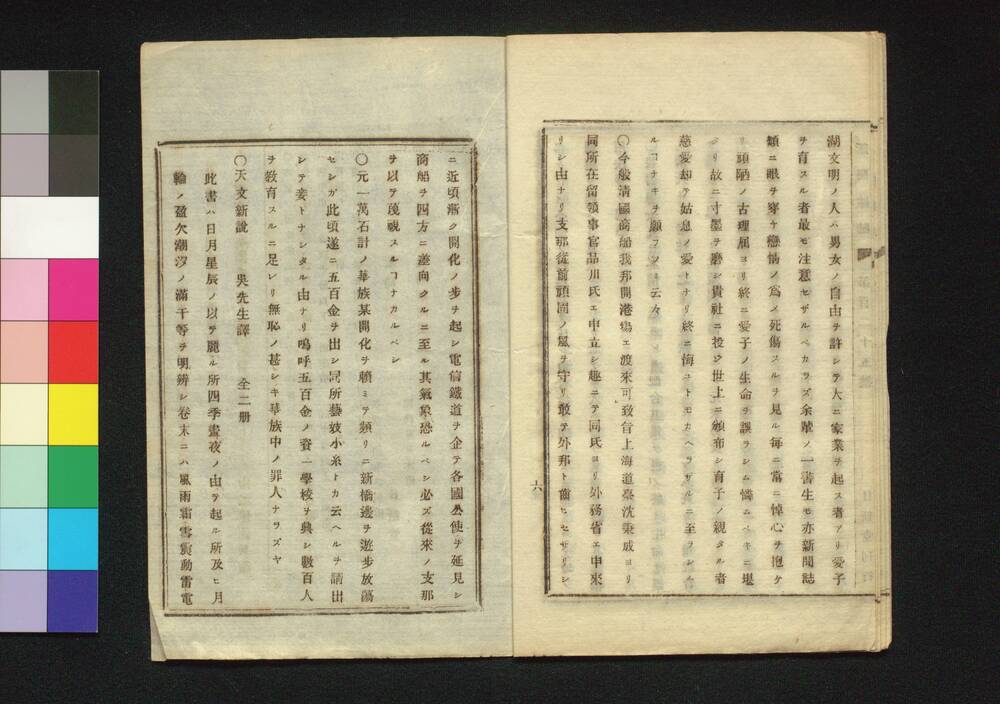 湖文明ノ人ハ男女ノ自由ヲ許シテ大ニ家業ヲ起ス者アリ愛子
ヲ育スル者最モ注意セザルベカラズ余輩ノ一書生モ亦新聞誌
類ニ眼ヲ穿ケ戀情ノ爲メ死傷スルヲ見ル毎ニ常ニ悼心ヲ抱ケ
リ頭陋ノ古理屈ヨリ終ニ愛子ノ生命ヲ誤ラシム憐ムベキニ堪
ヘリ故ニ寸墨ヲ磨シ貴社ニ投ジ世上ニ頒布シ育子ノ親タル者
慈愛却テ姑息ノ愛トナリ終ニ悔ユトモカヘラザルニ至ラシム
ルヿナキヲ願フノミ云々
〇今般清國商船我邦開港塲エ渡來可致旨上海道臺沈秉成ヨリ
同所在留領事官品川氏エ申立シ趣ニテ同氏ヨリ外務省エ申來
リシ由ナリ支那從前頑固ノ風ヲ守リ敢テ外邦ト齒ヒセザリシ
六
ニ近頃漸ク開化ノ步ヲ起シ電信鐵道ヲ企テ各國公使ヲ延見シ
商船ヲ四方ニ差向クルニ至ル其氣象恐ルベシ必ズ從來ノ支那
ヲ以テ蔑視スルヿナカルベシ
〇元一萬石計ノ華族某開化ヲ頼ミテ頻リニ新橋邊ヲ遊步放蕩
セシガ此頃遂ニ五百金ヲ出シ同所藝妓小糸トカ云ヘルヲ請出
シテ妾トナシタル由ナリ嗚呼五百金ノ資一學校ヲ興シ數百人
ヲ敎育スルニ足レリ無恥ノ甚シキ華族中ノ罪人ナラズヤ
〇天文新說 吳先生譯 全二册
此書ハ日月星辰ノ以テ麗ル所四季晝夜ノ由テ起ル所及ヒ月
輪ノ盈欠潮汐ノ滿干等ヲ明辨シ卷末ニハ風雨霜雪震動雷電